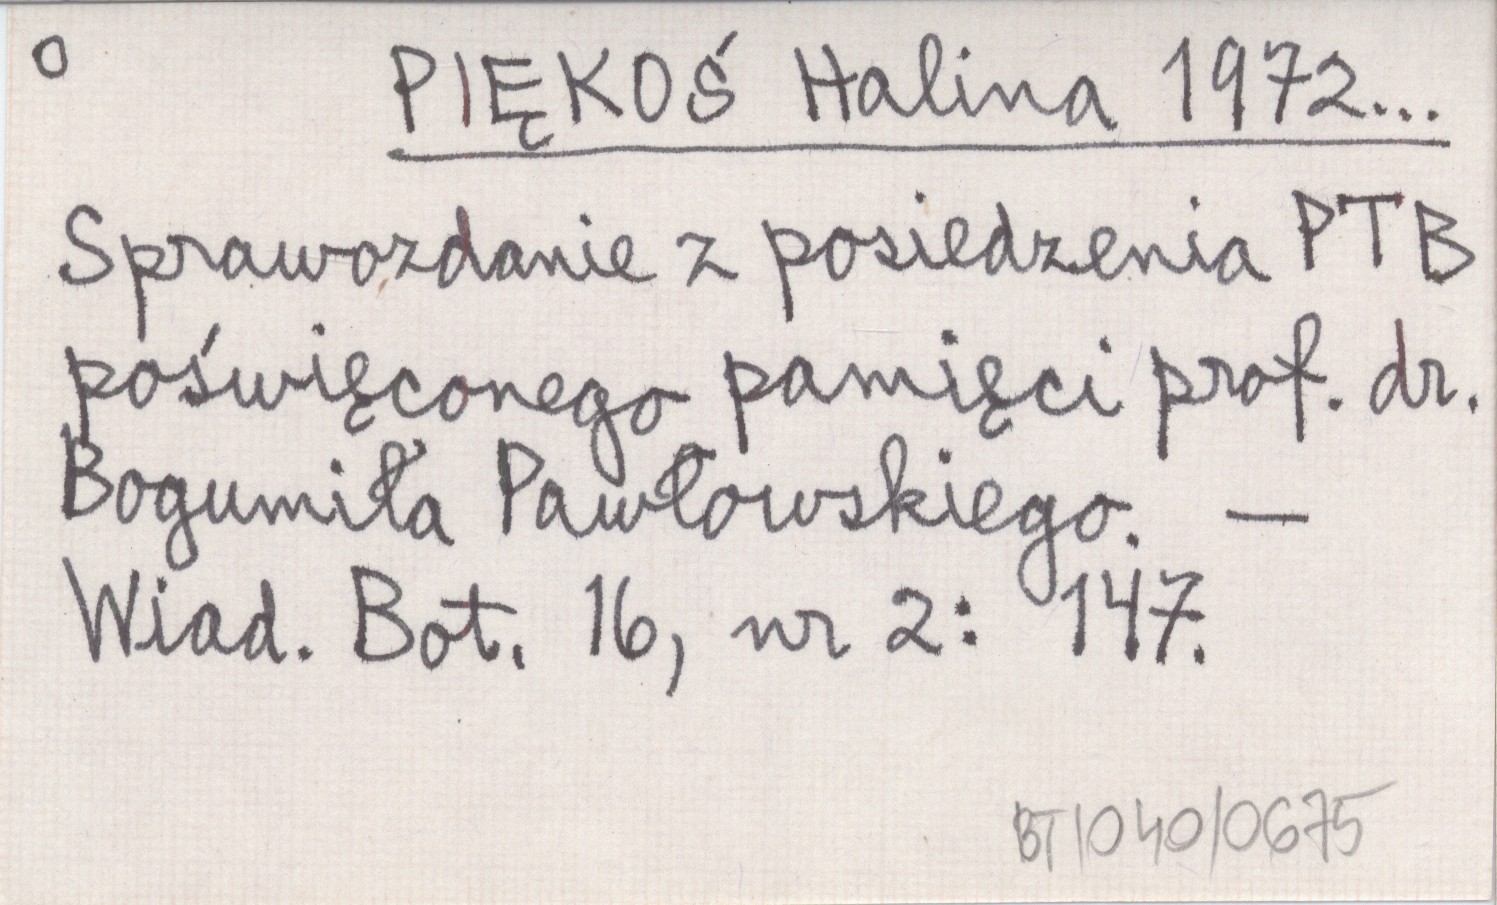 O PIĘKOŚ Halina 1972...
Sprawozdanie z posiedzenia PTB
poświęconego pamięci prof. dr.
Bogumiła Pawłowskiego. —
Wiad. Bot. 16, nr 2: 147.
BT/040/0675